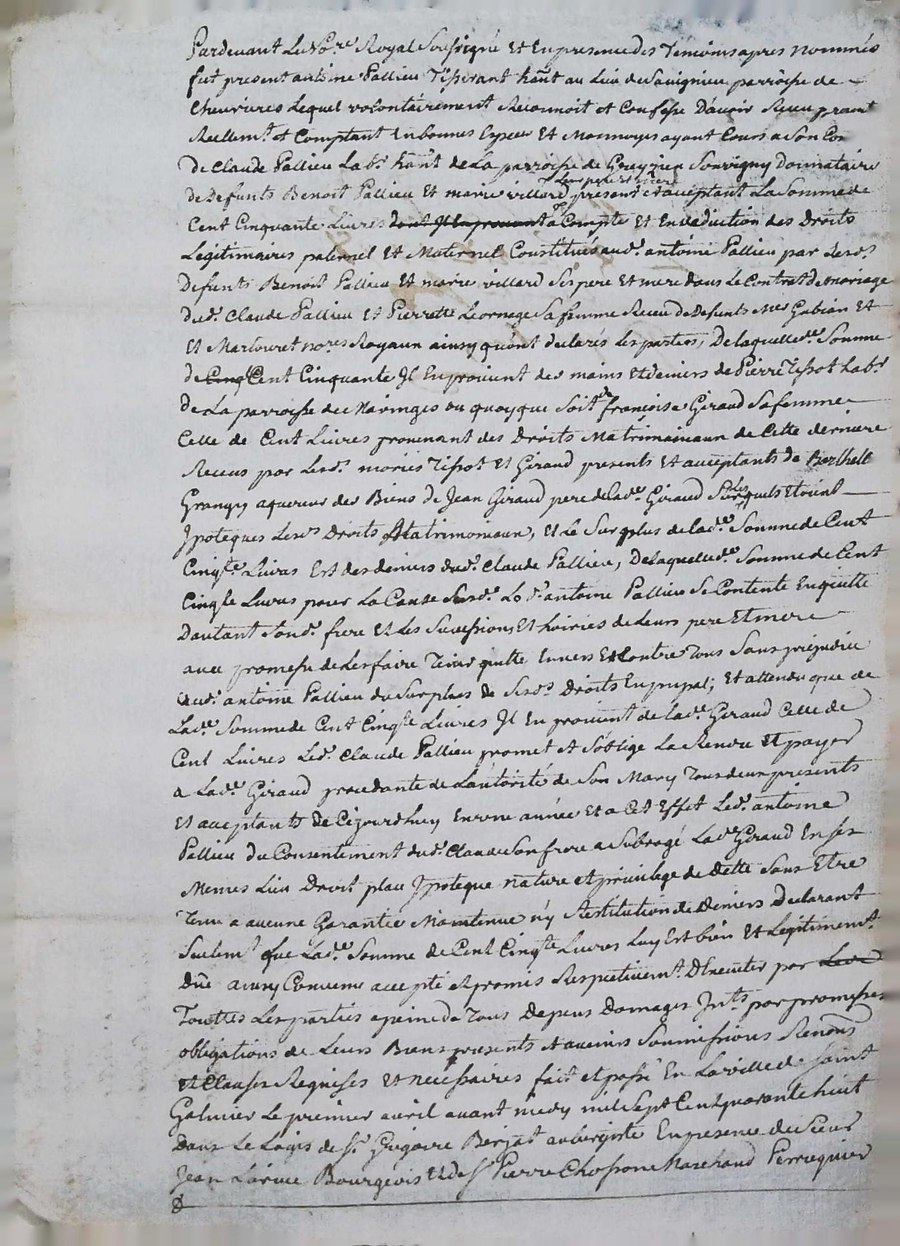 Pardevant Le No.re Royal Soussigné Et En presence des Temoins apres nommés
fut present antoine Pallieu Tisserant hãnt au Lieu de Savignieu parroisse de
Chevrieres Lequel volontairement Reconnoit et Confesse Davoir Receu
Reellem.t et Comptant En bonnes Especes Et Monnoyes ayant Cours a Son
De Claude Pallieu Lab.r hãnt de La parroisse de Souvigny Donnataire
de Defunts Benoit Pallieu Et marie villard Leurs pere Et mere present Et acceptant La Somme de
Cent Cinquante Livres a Compte Et En deduction des Droits
Legitimaires paternel Et Maternel Constitues aud.t antoine Pallieu par Lesd.s
Defunts Benoit Pallieu Et marie villard Ses pere Et mere dans Le Contrat de mariage
dud.t Claude Pallieu Et Pierrette Sa femme Receu de Defunts Mes Gubian Et
Et Martouret no.res Royaux ainsy quont declarés Les parties, De laquelle d.e Somme
de Cinq Cent Cinquante Il En provient des mains et deniers de Pierre Tissot Lab.r
De La parroisse de ou quoyque Soit de françoise Giraud Sa femme
Celle de Cent Livres provenant des Droits Matrimoniaux de Cette derniere
Receus par Lesd.s mariés Tissot Et Giraud presents Et acceptants de
Grangy aquereur des Biens de Jean Giraud pere de lad.e Giraud Sur Les quels Etoient
Ipoteques Lesd.s Droits Matrimoniaux, Et Le Surplus de lad.e Somme de Cent
Cinq.te Livres Est des deniers dud.t Claude Pallieu, De laquelle d.e Somme de Cent
Cinq.te Livres pour La Cause Susd.e Led.t antoine Pallieu Se Contente En quitte
Dautant Sond.t frere Et Les Successions Et hoiries de Leurs pere Et mere
avec promesse de Les faire Tenir quitte Envers Et Contre Tous Sans prejudice
aud.t antoine Pallieu du Surplus de Sesd.s Droits En pñpal; Et attendu que de
Lad.e Somme de Cent Cinq.te Livres Il En provient de lad.e Giraud Celle de
Cent Livres Led.t Claude Pallieu promet Et S'oblige La Rendre Et payer
a Lad.e Giraud procedante de Lautorité de Son Mary Tous deux presents
Et acceptants De Cejourdhuy En une année Et a Cet Effet Led.t antoine
Pallieu Du Consentement dud.t Claude Son frere a Subrogé Lad.e Giraud En Ses
Memes Lieu Droit place Ipoteque nature et privilege de dette Sans Etre
Tenu a aucune Garantie Maintenue n'y Restitution de Deniers Declarant
Seulem.t que Lad.e Somme de Cent Cinq.te Livres Luy Est bien Et Legitimem.t
Düe ainsy Convenu accepté et promis Respectivem.t D'Executer par
Touttes Les parties a peine de Tous Depens Domages Int.ts par promesses
obligations de Leurs Biens presents Et avenirs Soumissions Renons
Et Clauses Requises Et necessaires fait et passé En La ville de Saint
Galmier Le premier avril avant midy mil Sept Cent quarante huit
Dans Le Logis de S.r Grégoire Berjat aubergiste En presence de Sieur
Jean Bourgeois Et de S.r Pierre Chossone Marchand Perruquier